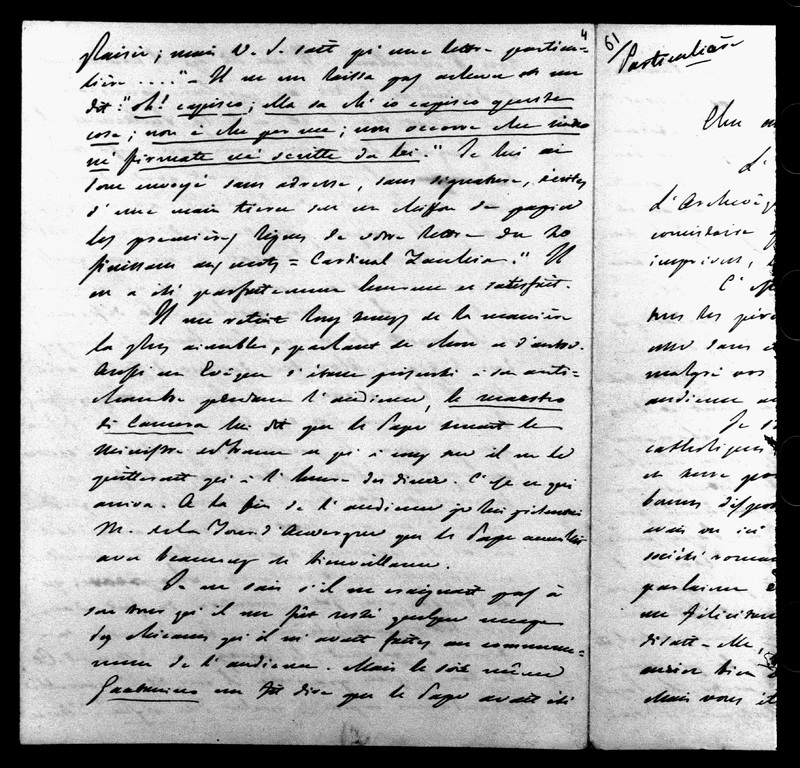 4
plaisir ; mais V. S. sait qu'une lettre particu=
lière ...." – Il ne me laissa pas achever et me
dit : "oh! capisco ; Ella sa che io capisco queste
cose ; non è che per me ; non occorre che sia
nè firmata nè scritta da lei." Je lui ai
donc envoyé sans adresse, sans signature, écrites
d'une main tierce sur un chiffon de papier
les premières lignes de votre lettre du 20
finissant aux mots = Cardinal Il
en a été parfaitement heureux et satisfait.
Il me retint long temps de la manière
la plus aimable, parlant de chose et d'autre.
Aussi un Evêque s'étant présenté à son anti=
chambre pendant l'audience, le maestro
di Camera lui dit que le Pape tenait le
Ministre de France et qu'à cinq heures il ne le
quitterait qu'à l'heure du diner. C'est ce qui
arriva. A la fin de l'audience je lui présentai
M. de la Tour d'Auvergne que le Pape accueillit
avec beaucoup de bienveillance.
Je ne sais s'il ne craignait pas à
son tour qu'il me fût resté quelque nuage
des chicanes qu'il m'avait faites au commence=
ment de l'audience. Mais le soir même
me fit dire que le Pape avait été
61
Particulière
Cher
L'
L'Archevêq
commissaire
imprévus,
C'est
tous les
sans
malgré vos
audience
Je
catholiques
et
bonnes dispos
avais vu ici
société romai
parlaient
me félicitai
disait-elle,
bien
Mais vous